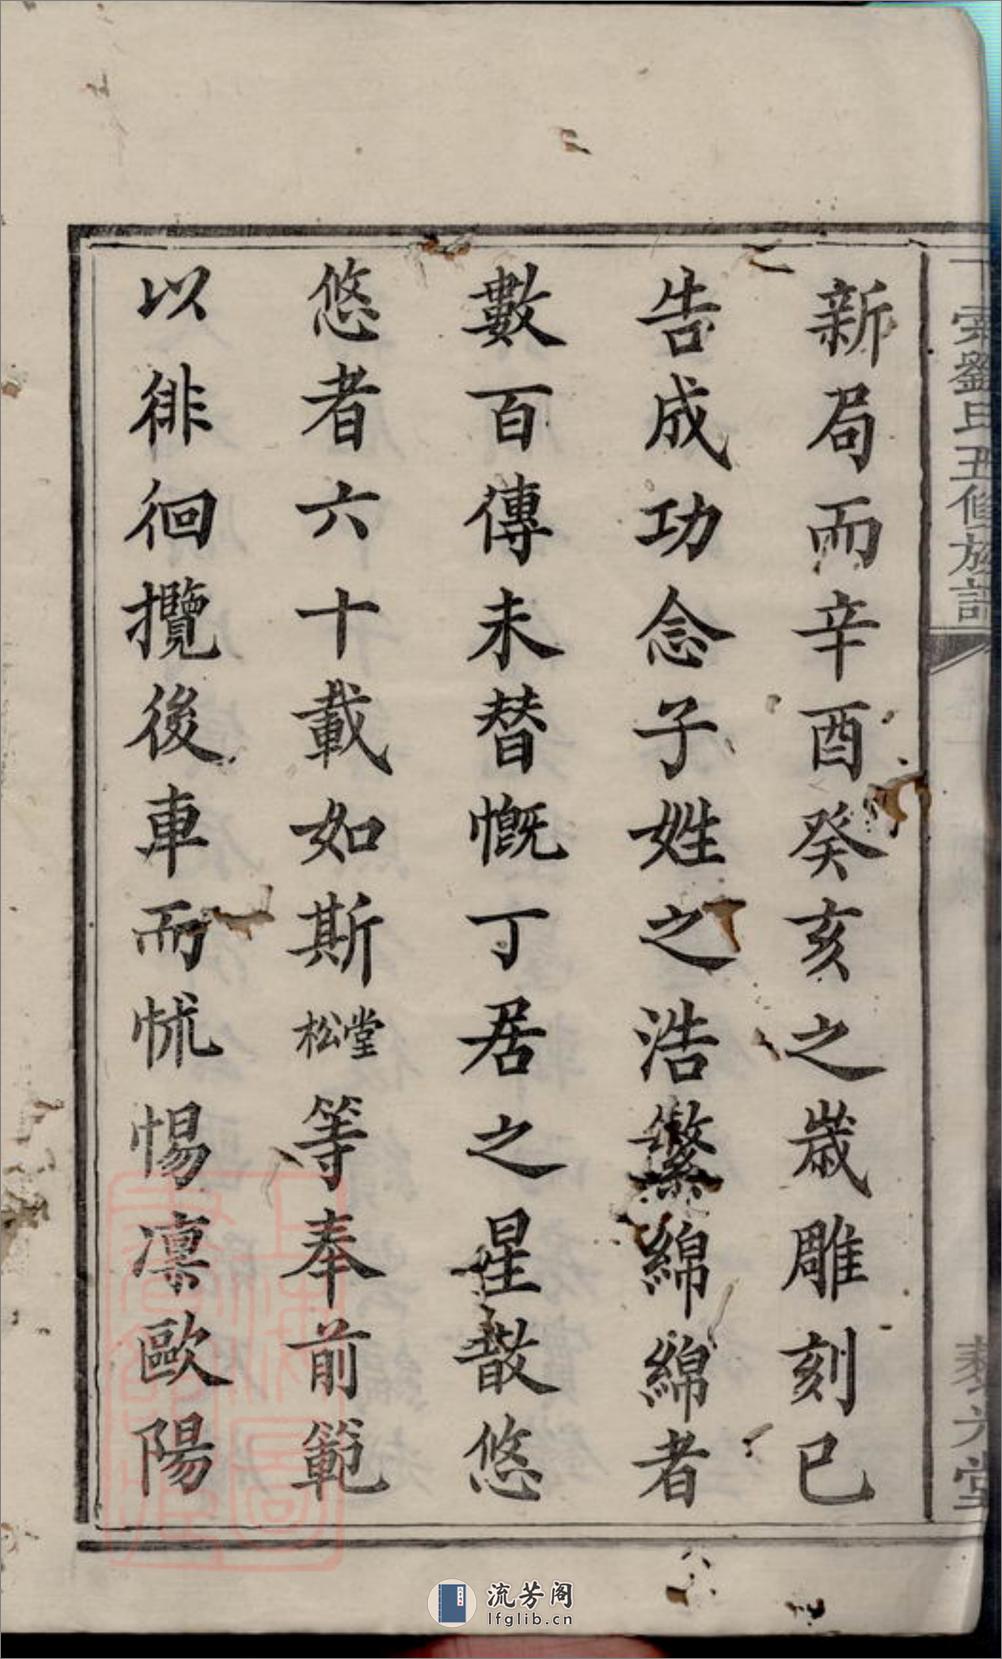 劉氏五修族譜
新局而辛酉癸亥之歲雕刻已
告成功念子姓之浩繁綿綿者
數百傳未替慨丁居之星散悠
悠者六十載如斯松堂等奉前範
以徘徊攬後車而怵惕凜歐陽
流芳阁
lfglib.cn